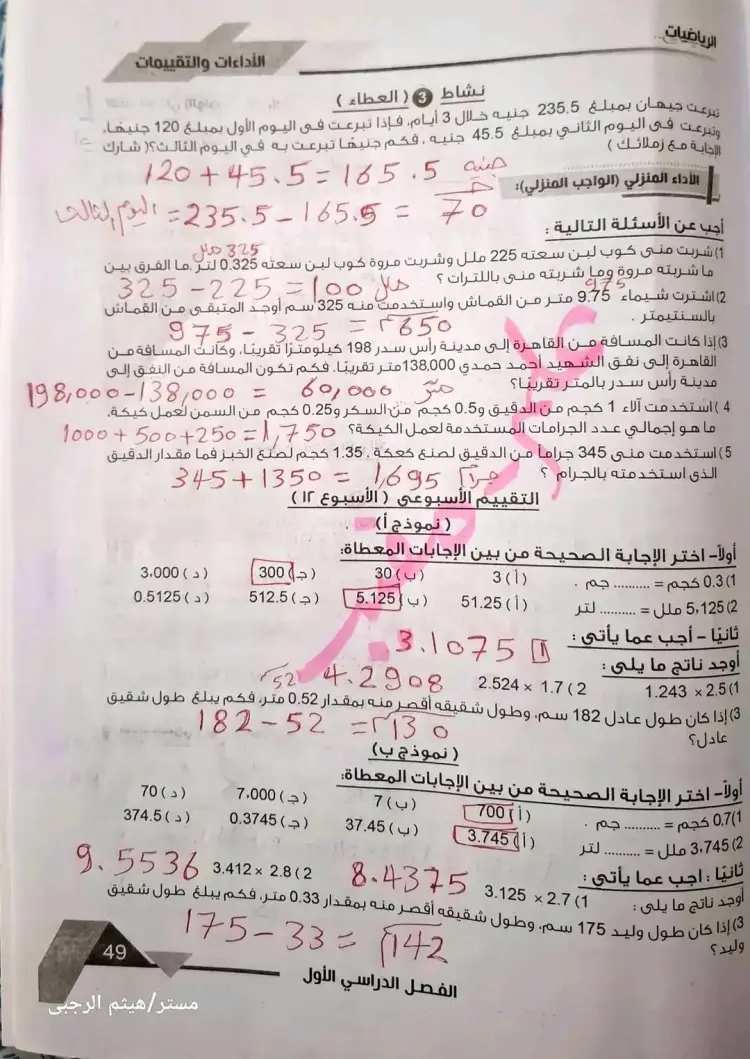 الرياضيات
الأداءات والتقييمات
نشاط 3 ( العطاء )
تبرعت جيهان بمبلغ 235.5 جنيه خلال 3 أيام، فإذا تبرعت في اليوم الأول بمبلغ 120 جنيهًا،
وتبرعت في اليوم الثاني بمبلغ 45.5 جنيه ، فكم جنيهًا تبرعت به في اليوم الثالث؟( شارك
الإجابة مع زملائك )
120 + 45.5 = 165.5 جنيه
الأداء المنزلي (الواجب المنزلي):
اليوم الثالث = 235.5 - 165.5 = 70
أجب عن الأسئلة التالية :
325 ملل
1) شربت منى كوب لبن سعته 225 ملل وشربت مروة كوب لبن سعته 0.325 لتر .ما الفرق بين
ما شربته مروة وما شربته منى باللترات ؟
325 - 225 = 100 ملل
975
2) اشترت شيماء 9.75 متر من القماش واستخدمت منه 325 سم أوجد المتبقى من القماش
بالسنتيمتر .
975 - 325 = 650
3) إذا كانت المسافة من القاهرة إلى مدينة رأس سدر 198 كيلومترًا تقريبًا، وكانت المسافة من
القاهرة إلى نفق الشهيد أحمد حمدي 138,000 متر تقريبًا. فكم تكون المسافة من النفق إلى
مدينة رأس سدر بالمتر تقريبًا؟
198,000 - 138,000 = 60,000 متر
4 ) استخدمت آلاء 1 كجم من الدقيق و0.5 كجم من السكر و0.25 كجم من السمن لعمل كيكة،
ما هو إجمالي عدد الجرامات المستخدمة لعمل الكيكة؟ 1000 + 500 + 250 = 1,750
5) استخدمت منى 345 جرامًا من الدقيق لصنع كعكة ، 1.35 كجم لصنع الخبز فما مقدار الدقيق
الذى استخدمته بالجرام ؟ 345 + 1350 = 1,695 جرام
التقييم الأسبوعي ( الأسبوع ١٢ )
( نموذج أ )
أولاً- اختر الإجابة الصحيحة من بين الإجابات المعطاة:
1) 0.3 كجم = .......... جم . ( أ ) 3 ( ب ) 30 ( جـ ) 300 ( د ) 3،000
2) 5،125 ملل = .......... لتر ( أ ) 51.25 ( ب ) 5.125 ( جـ ) 512.5 ( د ) 0.5125
ثانيًا - أجب عما يأتي :
1 3.1075
أوجد ناتج ما يلي :
1) 1.243 × 2.5 2 ) 2.524 × 1.7 4.2908
52
3) إذا كان طول عادل 182 سم، وطول شقيقه أقصر منه بمقدار 0.52 متر، فكم يبلغ طول شقيق
عادل؟
182 - 52 = 130
( نموذج ب )
أولاً- اختر الإجابة الصحيحة من بين الإجابات المعطاة:
1) 0.7 كجم = .......... جم . ( أ ) 700 ( ب ) 7 ( جـ ) 7،000 ( د ) 70
2) 3،745 ملل = .......... لتر ( أ ) 3.745 ( ب ) 37.45 ( جـ ) 0.3745 ( د ) 374.5
ثانيًا : اجب عما يأتي :
أوجد ناتج ما يلي : 1) 3.125 × 2.7 8.4375 2 ) 3.412 × 2.8 9.5536
3) إذا كان طول وليد 175 سم، وطول شقيقه أقصر منه بمقدار 0.33 متر، فكم يبلغ طول شقيق
وليد؟
175 - 33 = 142
الفصل الدراسي الأول
49
مستر/هيثم الرجبى